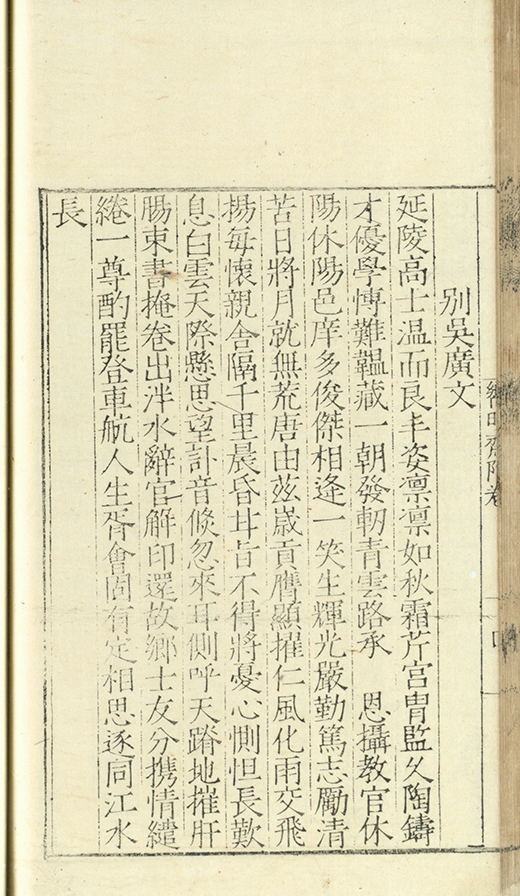 別吳廣文
延陵高士温而良丰姿凛凛如秋霜芹宫胄監久陶鑄
才優學博難韞藏一朝發軔青雲路承　恩攝教官休
陽休陽邑庠多俊傑相逢一笑生輝光嚴勤篤志勵清
苦日將月就無荒唐由兹歲貢膺顯擢仁風化雨交飛
揚每懷親舍隔千里晨昏甘旨不得將憂心惻怛長歎
息白雲天際懸思望訃音倐忽來耳側呼天蹐地摧肝
腸束書掩卷出泮水辭官解印還故鄉士友分携情繾
綣一尊酌罷登車航人生胥會固有定相思逐同江水
長